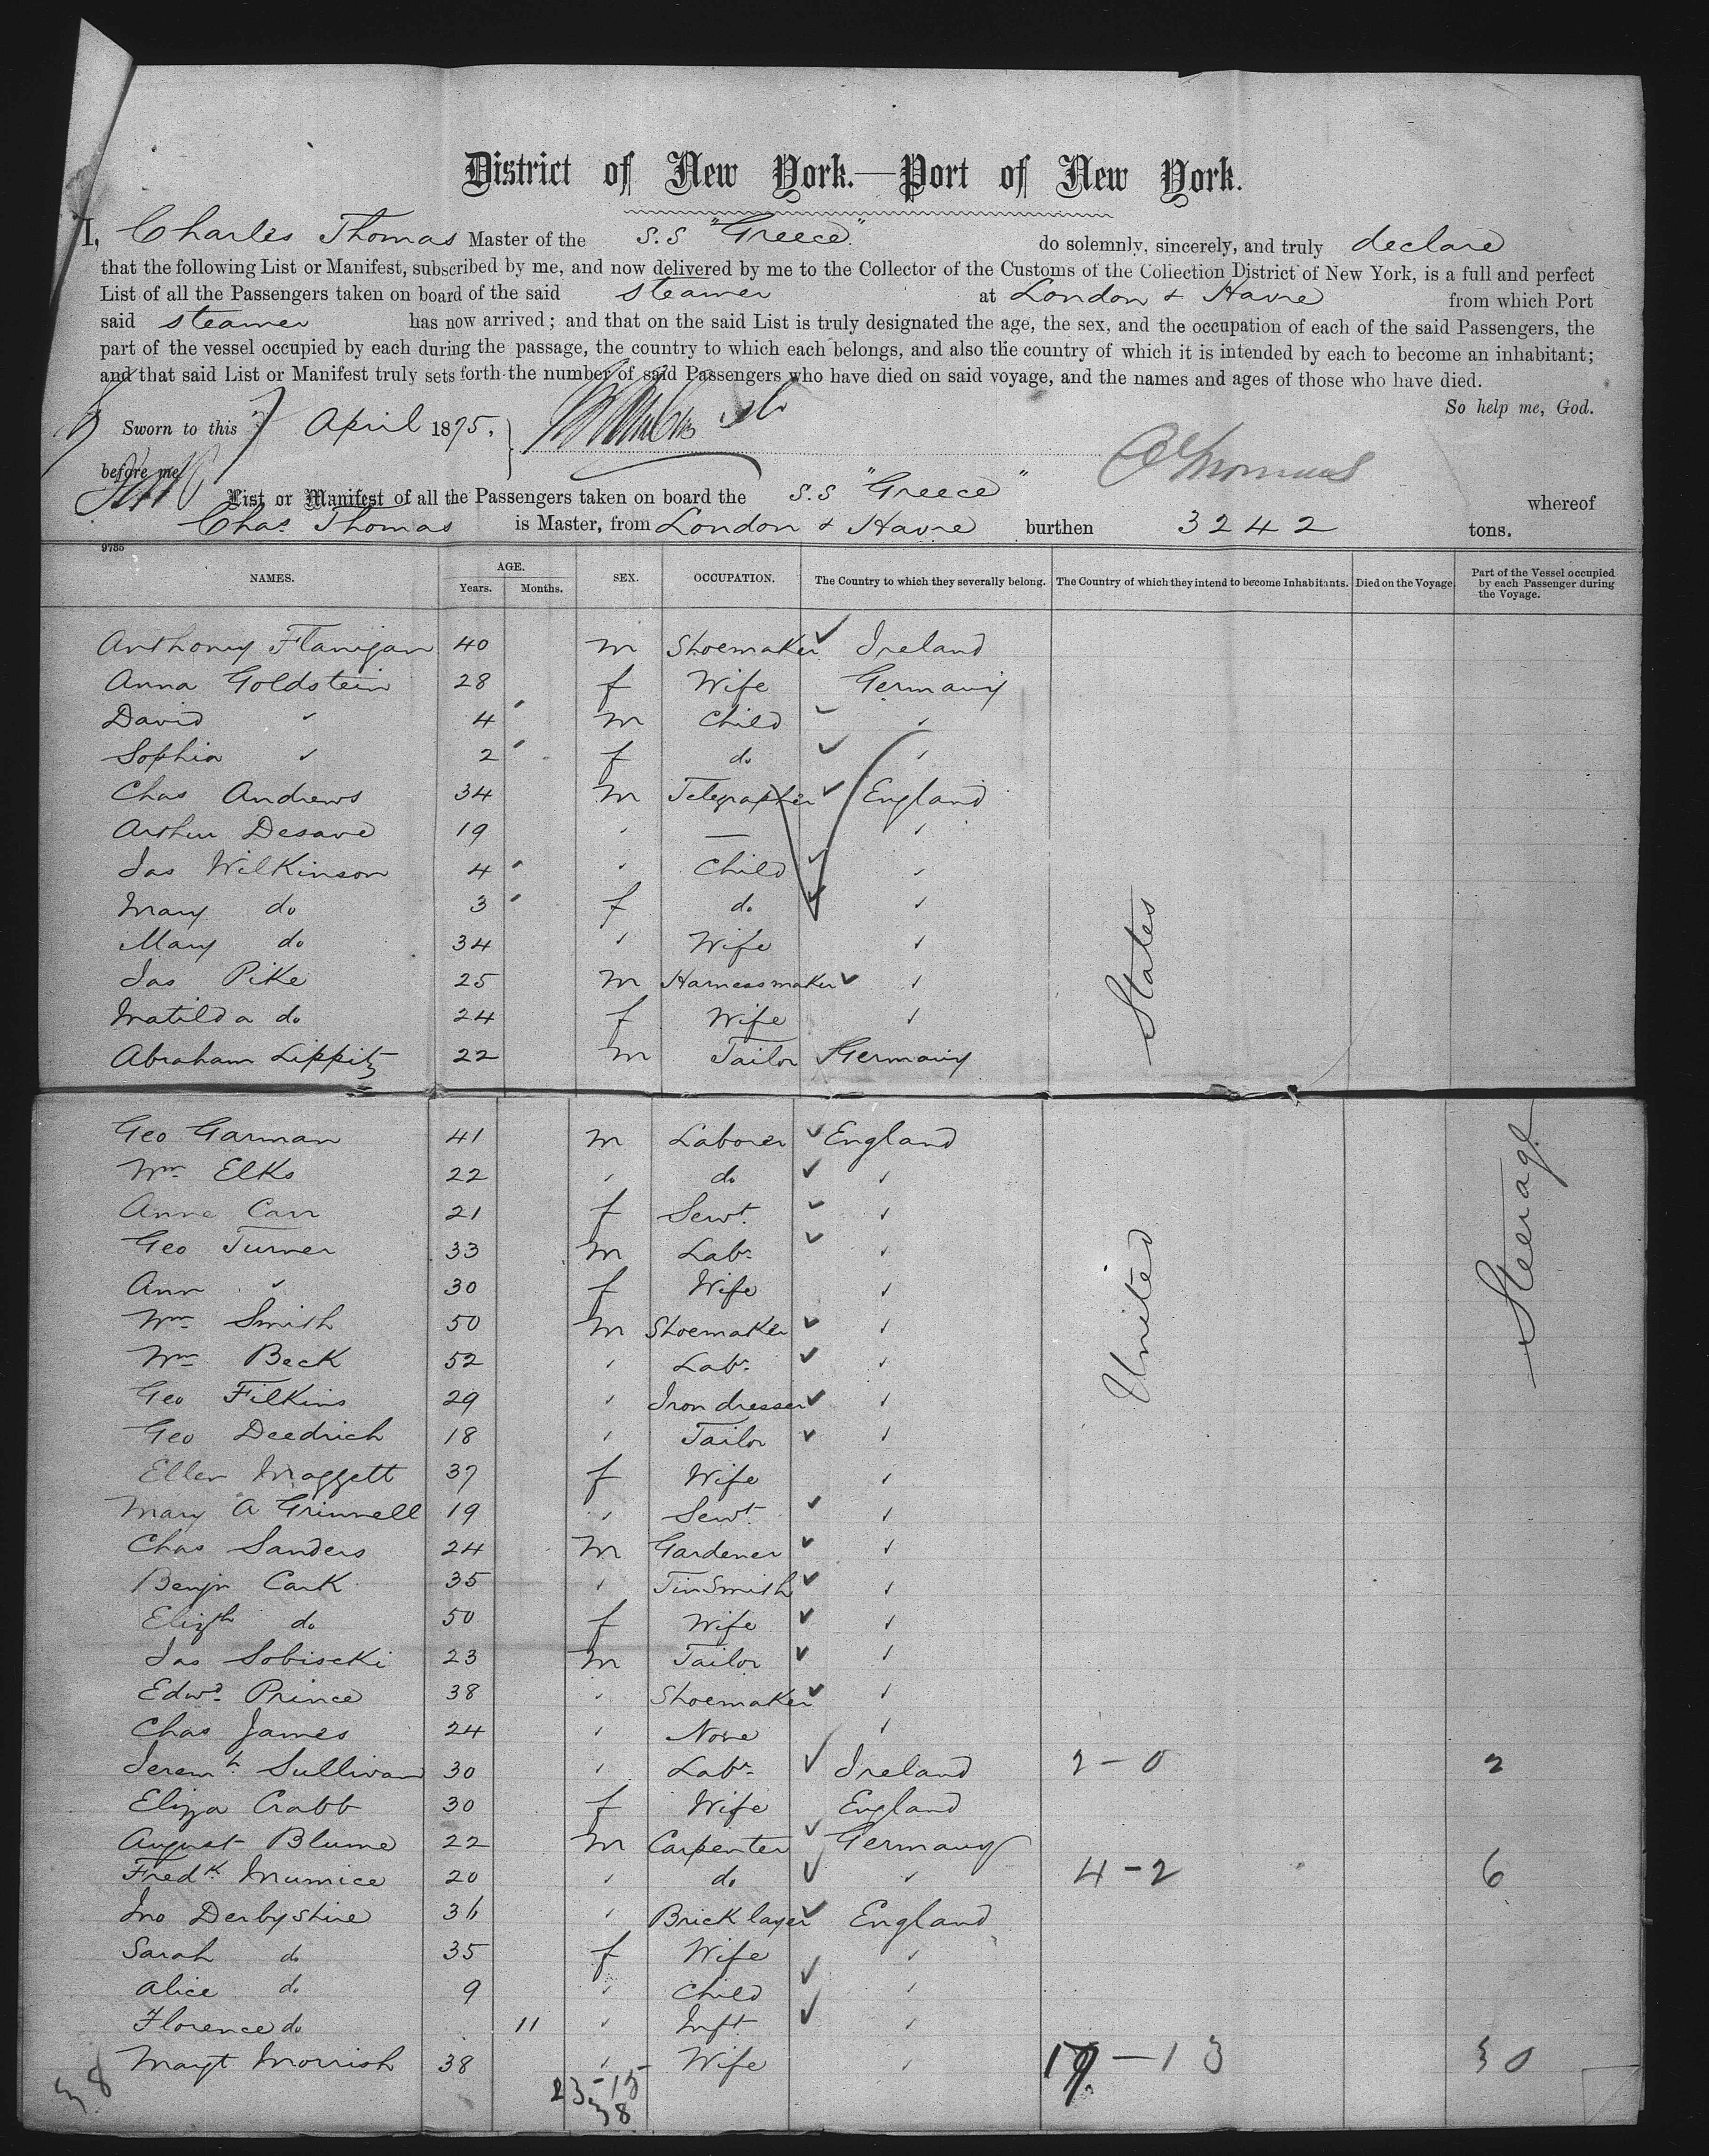 District of New York.—Port of New York.
I, Charles Thomas Master of the S.S "Greece" do solemnly, sincerely, and truly declare
that the following List or Manifest, subscribed by me, and now delivered by me to the Collector of the Customs of the Collection District of New York, is a full and perfect
List of all the Passengers taken on board of the said steamer at London & Havre from which Port
said steamer has now arrived; and that on the said List is truly designated the age, the sex, and the occupation of each of the said Passengers, the
part of the vessel occupied by each during the passage, the country to which each belongs, and also the country of which it is intended by each to become an inhabitant;
and that said List or Manifest truly sets forth the number of said Passengers who have died on said voyage, and the names and ages of those who have died.
So help me, God.
Sworn to this 7 April 1875,
before me
C Thomas
List or Manifest of all the Passengers taken on board the S.S "Greece" whereof
Chas. Thomas is Master, from London & Havre burthen 3242 tons.
9785
NAMES. AGE. Years. Months. SEX. OCCUPATION. The Country to which they severally belong. The Country of which they intend to become Inhabitants. Died on the Voyage. Part of the Vessel occupied by each Passenger during the Voyage.
Anthony Flanigan 40 m Shoemaker Ireland
Anna Goldstein 28 f Wife Germany
David " 4 m Child "
Sophia " 2 f do "
Chas Andrews 34 m Telegrapher England
Arthur Desave 19 " — "
Jas Wilkinson 4 " Child "
Mary do 3 f do "
Mary do 34 " Wife "
Jas Pike 25 m Harnessmaker "
Matilda do 24 f Wife "
Abraham Lippitz 22 m Tailor Germany
Geo Garman 41 m Laborer England
Wm Elks 22 " do "
Anne Carr 21 f Servt. "
Geo Turner 33 m Labr. "
Ann " 30 f Wife "
Wm Smith 50 m Shoemaker "
Wm Beck 52 " Labr. "
Geo Filkins 29 " Iron dresser "
Geo Deedrich 18 " Tailor "
Ellen Maggett 37 f Wife "
Mary A Grinnell 19 " Servt. "
Chas Sanders 24 m Gardener "
Benjn Cark 35 " TinSmith "
Elizth do 50 f Wife "
Jas Sobiscki 23 m Tailor "
Edwd. Prince 38 " Shoemaker "
Chas James 24 " None "
Jeremh. Sullivan 30 " Labr. Ireland 2-0 2
Eliza Crabb 30 f Wife England
August Blume 22 m Carpenter Germany
Fredk. Mumice 20 " do " 4-2 6
Jno Derbyshire 36 " Bricklayer England
Sarah do 35 f Wife "
Alice do 9 " Child "
Florence do 11 " Inft. "
Margt Morrish 38 " Wife " 17-13 30
United States
Steerage
38
23-15
38